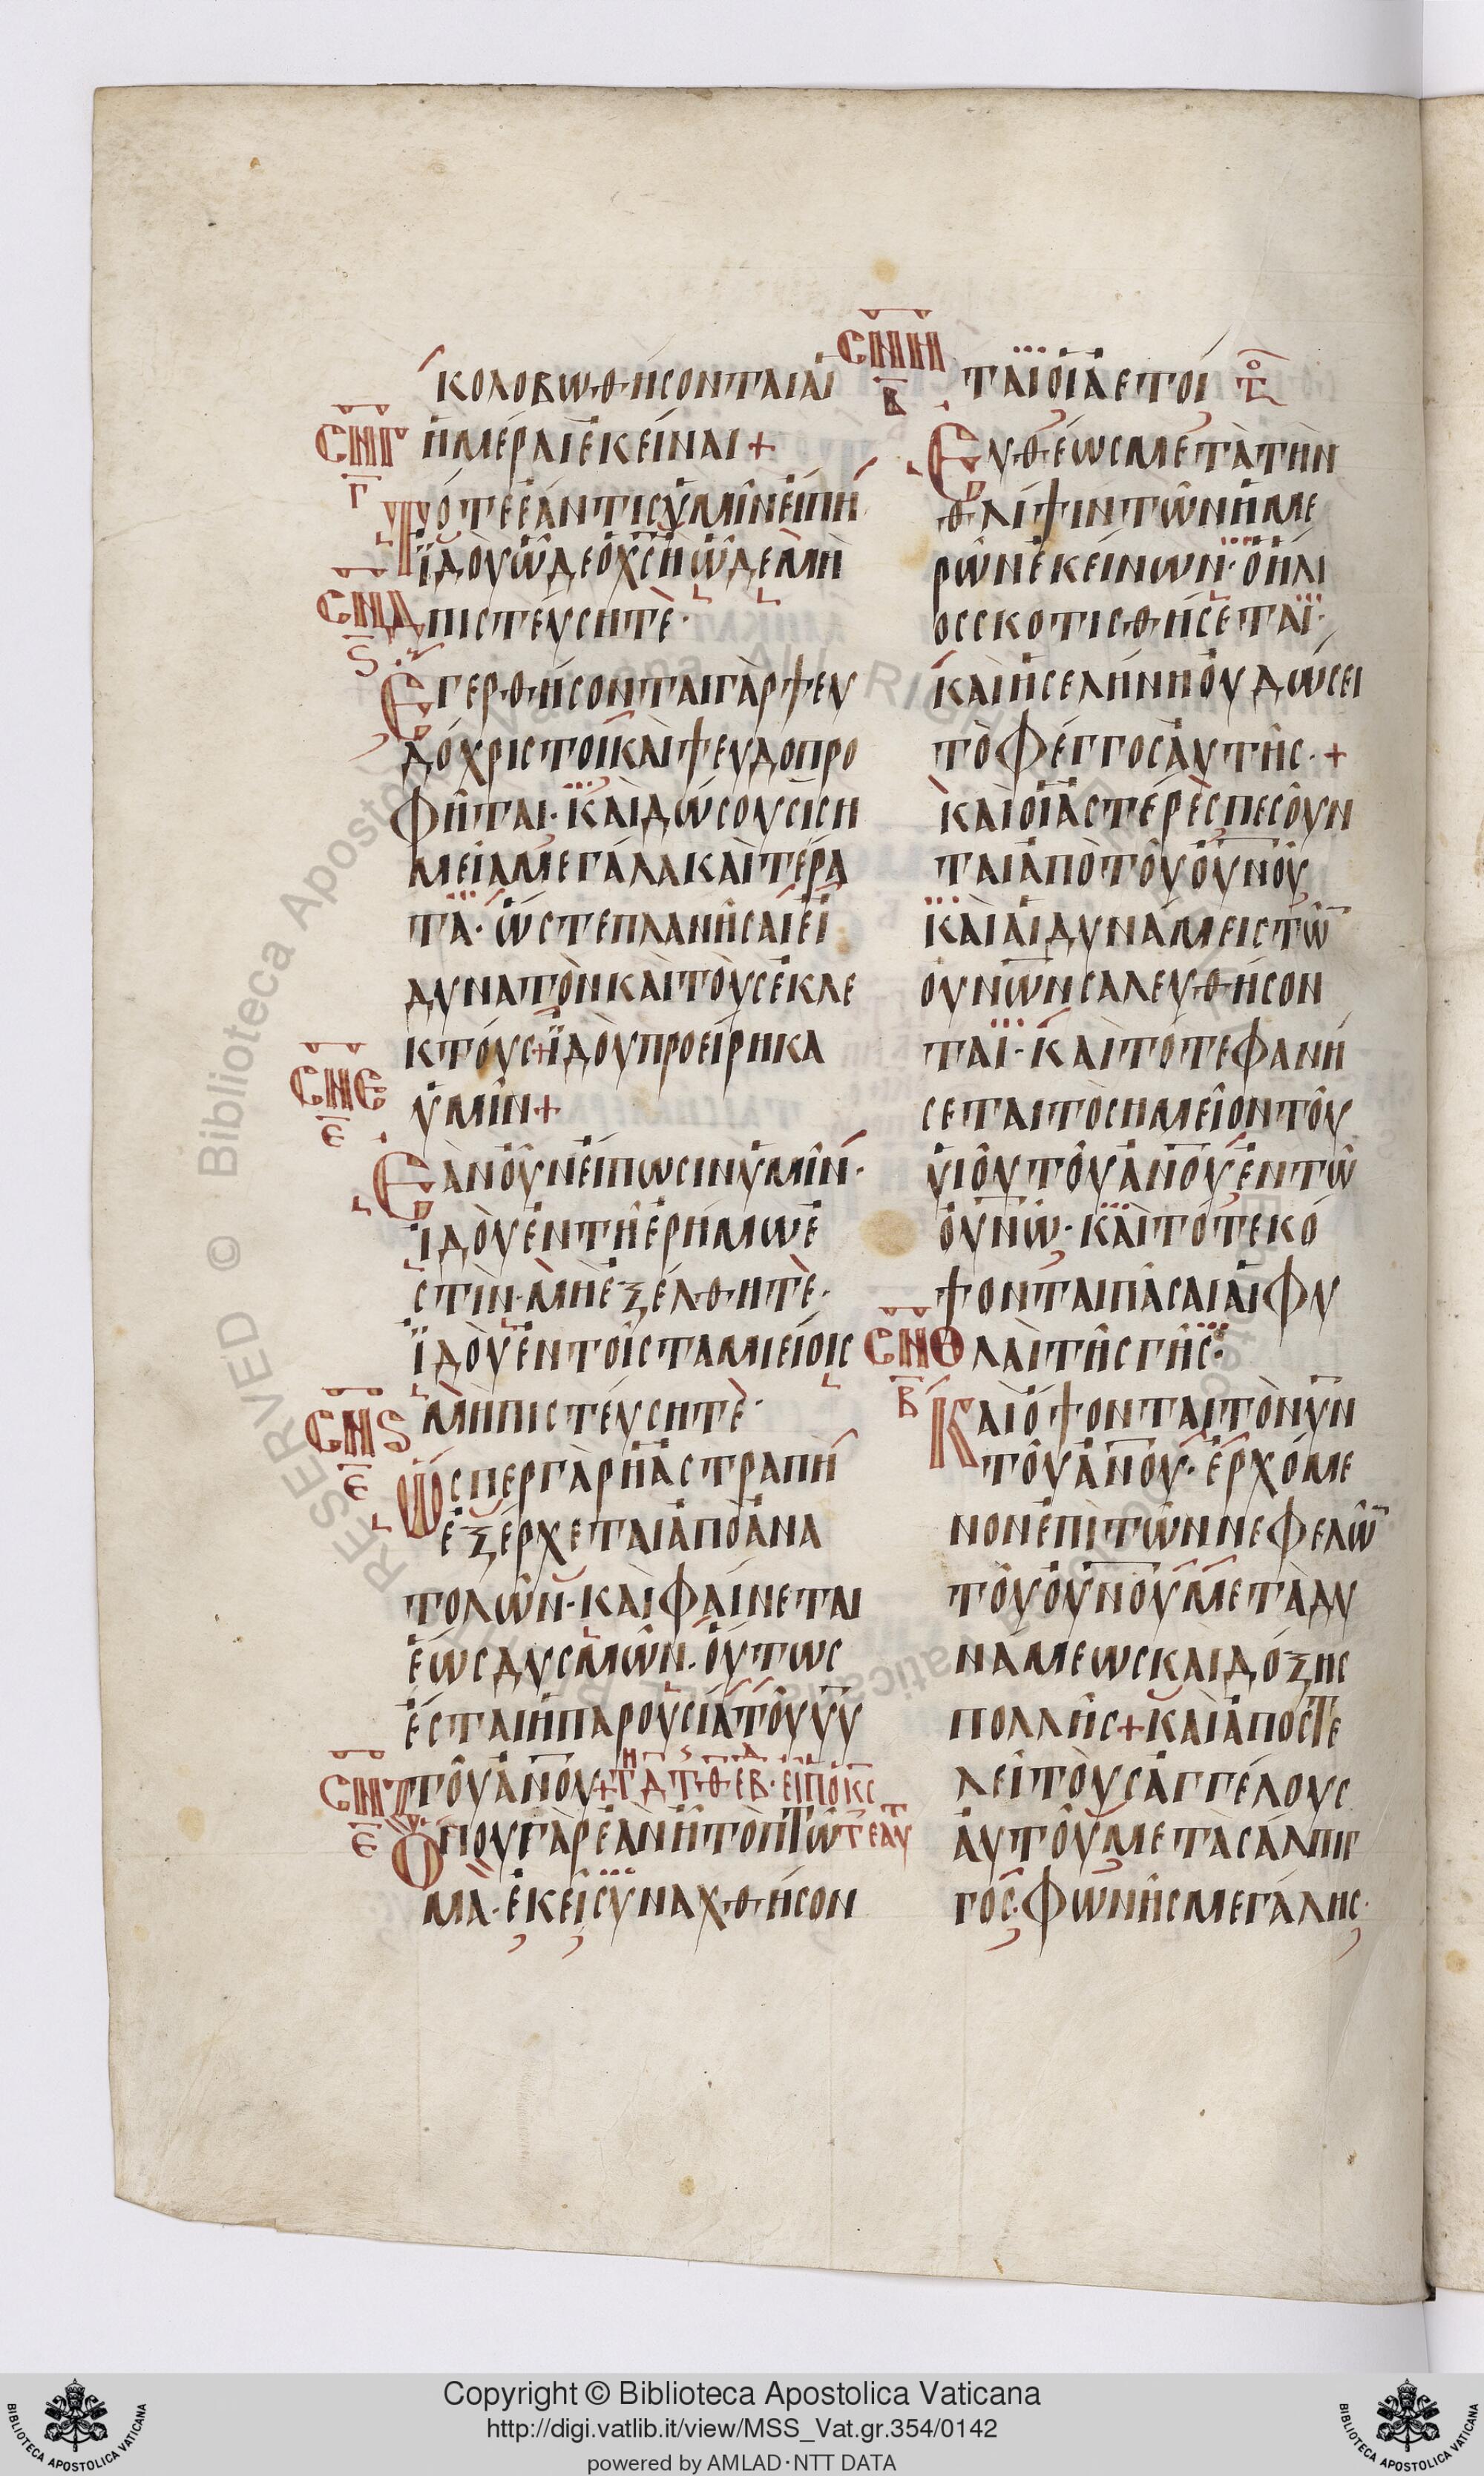 ΚΟΛΟΒΩΘΗΣΟΝΤΑΙΑΙ
ΣΝΓ
ΗΜΕΡΑΙΕΚΕΙΝΑΙ+
Γ
ΤΟΤΕΕΑΝΤΙΣΥΜΙΝΕΙΠΗ
ΙΔΟΥΩΔΕΟΧΣΗΩΔΕΜΗ
ΣΝΔ
ΠΙΣΤΕΥΣΗΤΕ·
Ϛ
ΕΓΕΡΘΗΣΟΝΤΑΙΓΑΡΨΕΥ
ΔΟΧΡΙΣΤΟΙΚΑΙΨΕΥΔΟΠΡΟ
ΦΗΤΑΙ·ΚΑΙΔΩΣΟΥΣΙΣΗ
ΜΕΙΑΜΕΓΑΛΑΚΑΙΤΕΡΑ
ΤΑ·ΩΣΤΕΠΛΑΝΗΣΑΙΕΙ
ΔΥΝΑΤΟΝΚΑΙΤΟΥΣΕΚΛΕ
ΚΤΟΥΣ+ΙΔΟΥΠΡΟΕΙΡΗΚΑ
ΣΝΕ
ΥΜΙΝ+
Ε
ΕΑΝΟΥΝΕΙΠΩΣΙΝΥΜΙΝ·
ΙΔΟΥΕΝΤΗΕΡΗΜΩΕ
ΣΤΙΝ·ΜΗΕΞΕΛΘΗΤΕ·
ΙΔΟΥΕΝΤΟΙΣΤΑΜΙΕΙΟΙΣ
ΣΝϚ
ΜΗΠΙΣΤΕΥΣΗΤΕ·
Ε
ΩΣΠΕΡΓΑΡΗΑΣΤΡΑΠΗ
ΕΞΕΡΧΕΤΑΙΑΠΟΑΝΑ
ΤΟΛΩΝ·ΚΑΙΦΑΙΝΕΤΑΙ
ΕΩΣΔΥΣΜΩΝ·ΟΥΤΩΣ
ΕΣΤΑΙΗΠΑΡΟΥΣΙΑΤΟΥΥΥ
ΣΝΖ
ΤΟΥΑΝΟΥ+
Ε
ΟΠΟΥΓΑΡΕΑΝΗΤΟΠΤΩ
ΜΑ·ΕΚΕΙΣΥΝΑΧΘΗΣΟΝ
ΣΝΗ
Β
ΤΑΙΟΙΑΕΤΟΙ
ΕΥΘΕΩΣΜΕΤΑΤΗΝ
ΘΛΙΨΙΝΤΩΝΗΜΕ
ΡΩΝΕΚΕΙΝΩΝ·ΟΗΛΙ
ΟΣΣΚΟΤΙΣΘΗΣΕΤΑΙ·
ΚΑΙΗΣΕΛΗΝΗΟΥΔΩΣΕΙ
ΤΟΦΕΓΓΟΣΑΥΤΗΣ·+
ΚΑΙΟΙΑΣΤΕΡΕΣΠΕΣΟΥΝ
ΤΑΙΑΠΟΤΟΥΟΥΝΟΥ
ΚΑΙΑΙΔΥΝΑΜΕΙΣΤΩ̅
ΟΥΝΩΝΣΑΛΕΥΘΗΣΟΝ
ΤΑΙ·ΚΑΙΤΟΤΕΦΑΝΗ
ΣΕΤΑΙΤΟΣΗΜΕΙΟΝΤΟΥ
ΥΙΟΥΤΟΥΑΝΟΥΕΝΤΩ
ΟΥΝΩ·ΚΑΙΤΟΤΕΚΟ
ΨΟΝΤΑΙΠΑΣΑΙΑΙΦΥ
ΣΝΘ
ΛΑΙΤΗΣΓΗΣ·
Β
ΚΑΙΟΨΟΝΤΑΙΤΟΝΥΝ
ΤΟΥΑΝΟΥ·ΕΡΧΟΜΕ
ΝΟΝΕΠΙΤΩΝΝΕΦΕΛΩ̅
ΤΟΥΟΥΝΟΥΜΕΤΑΔΥ
ΝΑΜΕΩΣΚΑΙΔΟΞΗΣ
ΠΟΛΛΗΣ+ΚΑΙΑΠΟΣΤΕ
ΛΕΙΤΟΥΣΑΓΓΕΛΟΥΣ
ΑΥΤΟΥΜΕΤΑΣΑΛΠΙΓ
ΓΟΣ·ΦΩΝΗΣΜΕΓΑΛΗΣ·
© Biblioteca Apostolica Vaticana ALL RIGHTS RESERVED
Copyright © Biblioteca Apostolica Vaticana
http://digi.vatlib.it/view/MSS_Vat.gr.354/0142
powered by AMLAD·NTT DATA
BIBLIOTECA APOSTOLICA VATICANA
BIBLIOTECA APOSTOLICA VATICANA